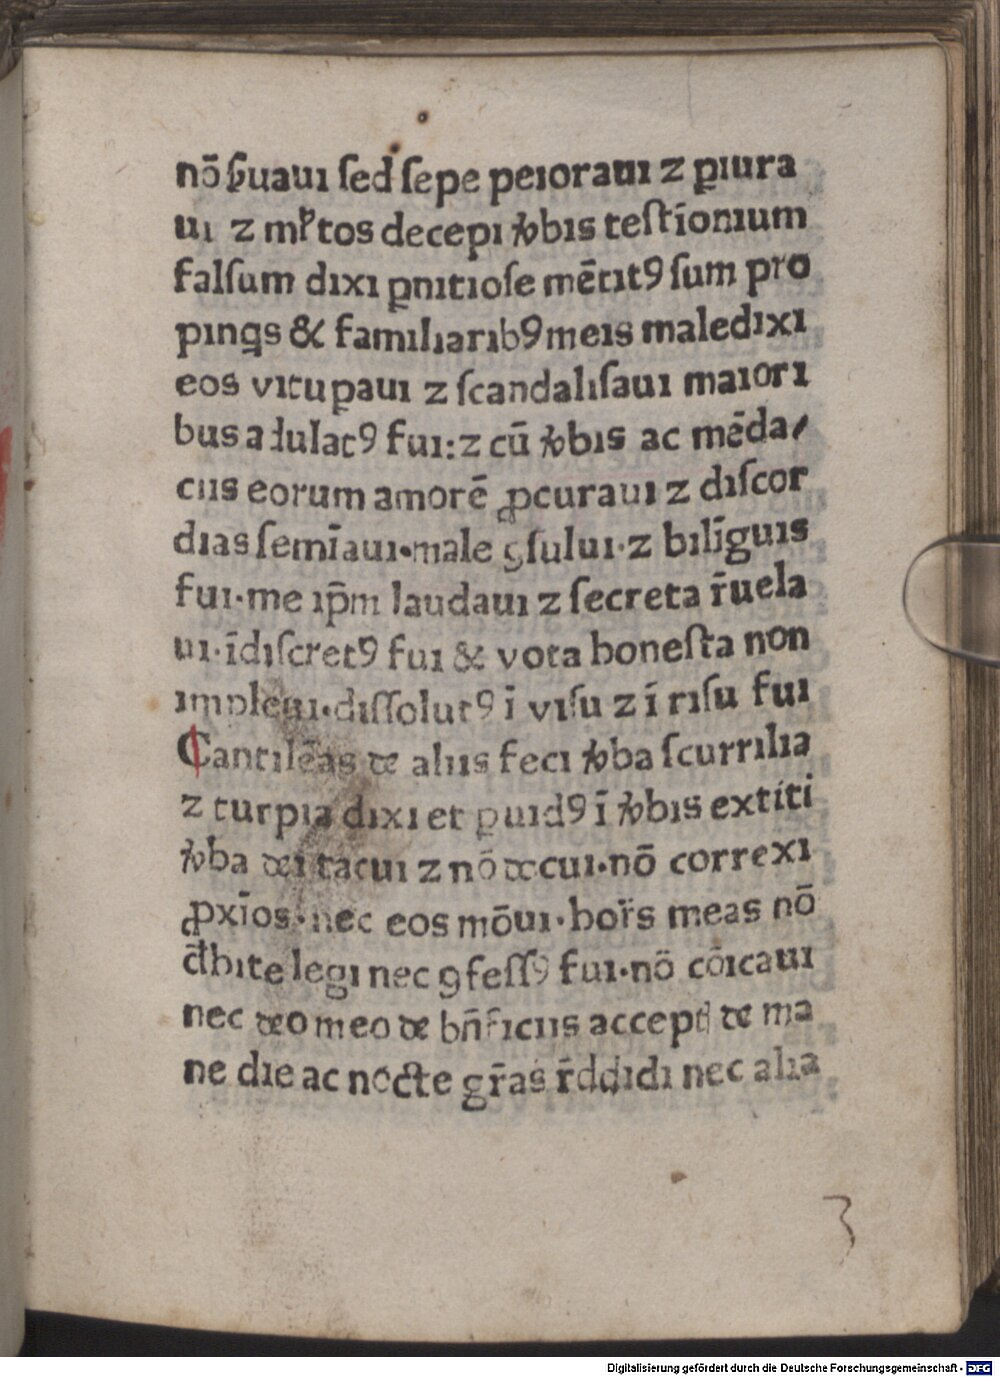 nō ꝟuaui ſed ſepe peioraui ⁊ ꝑiura
ui ⁊ ml̕tos decepi ꝟbis teſtīonium
falſum dixi ꝑnitioſe mētitꝰ ſum pro
pinqs & familiaribꝰ meis maledixi
eos vituꝑaui ⁊ ſcandaliſaui maiori
bus adulatꝰ fui: ⁊ cū ꝟbis ac mēda⸗
ciis eorum amorē ꝓcuraui ⁊ diſcor
dias ſemīaui·male ꝯſului·⁊ bilīguis
fui·me ip̄m laudaui ⁊ ſecreta r̄uela
ui·īdiſcretꝰ fui & vota honeſta non
impleui·diſſolutꝰ ī viſu ⁊ ī riſu fui
Cantilēas de aliis feci ꝟba ſcurrilia
⁊ turpia dixi et ꝑuidꝰ ī ꝟbis extiti
ꝟba dei tacui ⁊ nō docui·nō correxi
ꝓxīos·nec eos mōui·hor̄s meas nō
d̄bite legi nec ꝯfeſſꝰ fui·nō cōicaui
nec deo meo de bn̄ficiis acceptꝭ de ma
ne die ac nocte gr̄as r̄ddidi nec alia
3
Digitalisierung gefördert durch die Deutsche Forschungsgemeinschaft - DFG